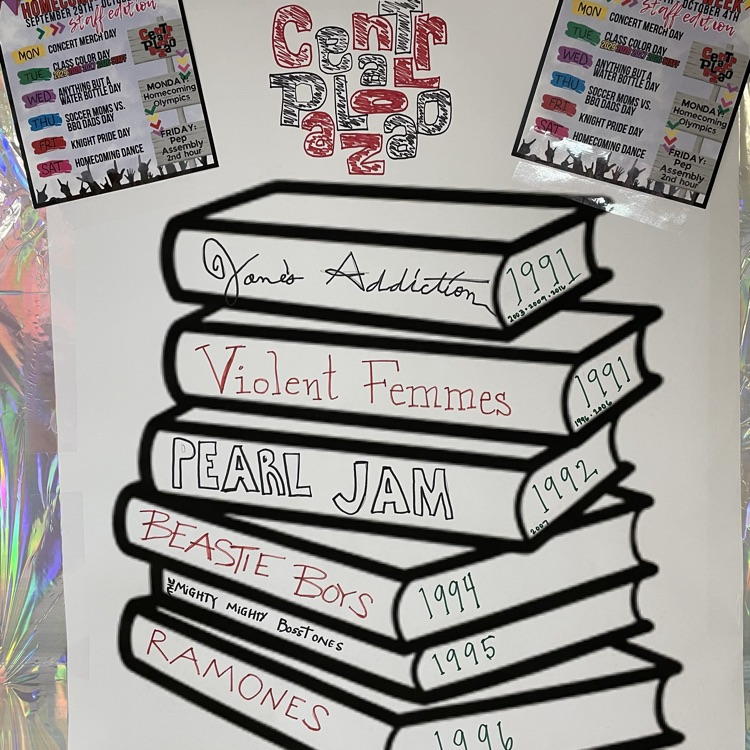 HOMECOMING
SEPTEMBER 29TH - OCTOBER
staff edition
MON CONCERT MERCH DAY
TUE CLASS COLOR DAY
WED ANYTHING BUT A
WATER BOTTLE DAY
THU SOCCER MOMS VS.
BBQ DADS DAY
FRI KNIGHT PRIDE DAY
SAT HOMECOMING DANCE
MONDAY:
Homecoming
Olympics
FRIDAY:
Pep
Assembly
2nd hour
OCTOBER 4TH
staff edition
MON CONCERT MERCH DAY
TUE CLASS COLOR DAY
WED ANYTHING BUT A
WATER BOTTLE DAY
THU SOCCER MOMS VS.
BBQ DADS DAY
FRI KNIGHT PRIDE DAY
SAT HOMECOMING DANCE
MONDAY:
Homecoming
Olympics
FRIDAY:
Pep
Assembly
2nd hour
Jane's Addiction 1991
2003 · 2009 · 2016
Violent Femmes 1991
1996 · 2006
PEARL JAM 1992
2007
BEASTIE BOYS 1994
THE MIGHTY MIGHTY BOSSTONES 1995
RAMONES 1996